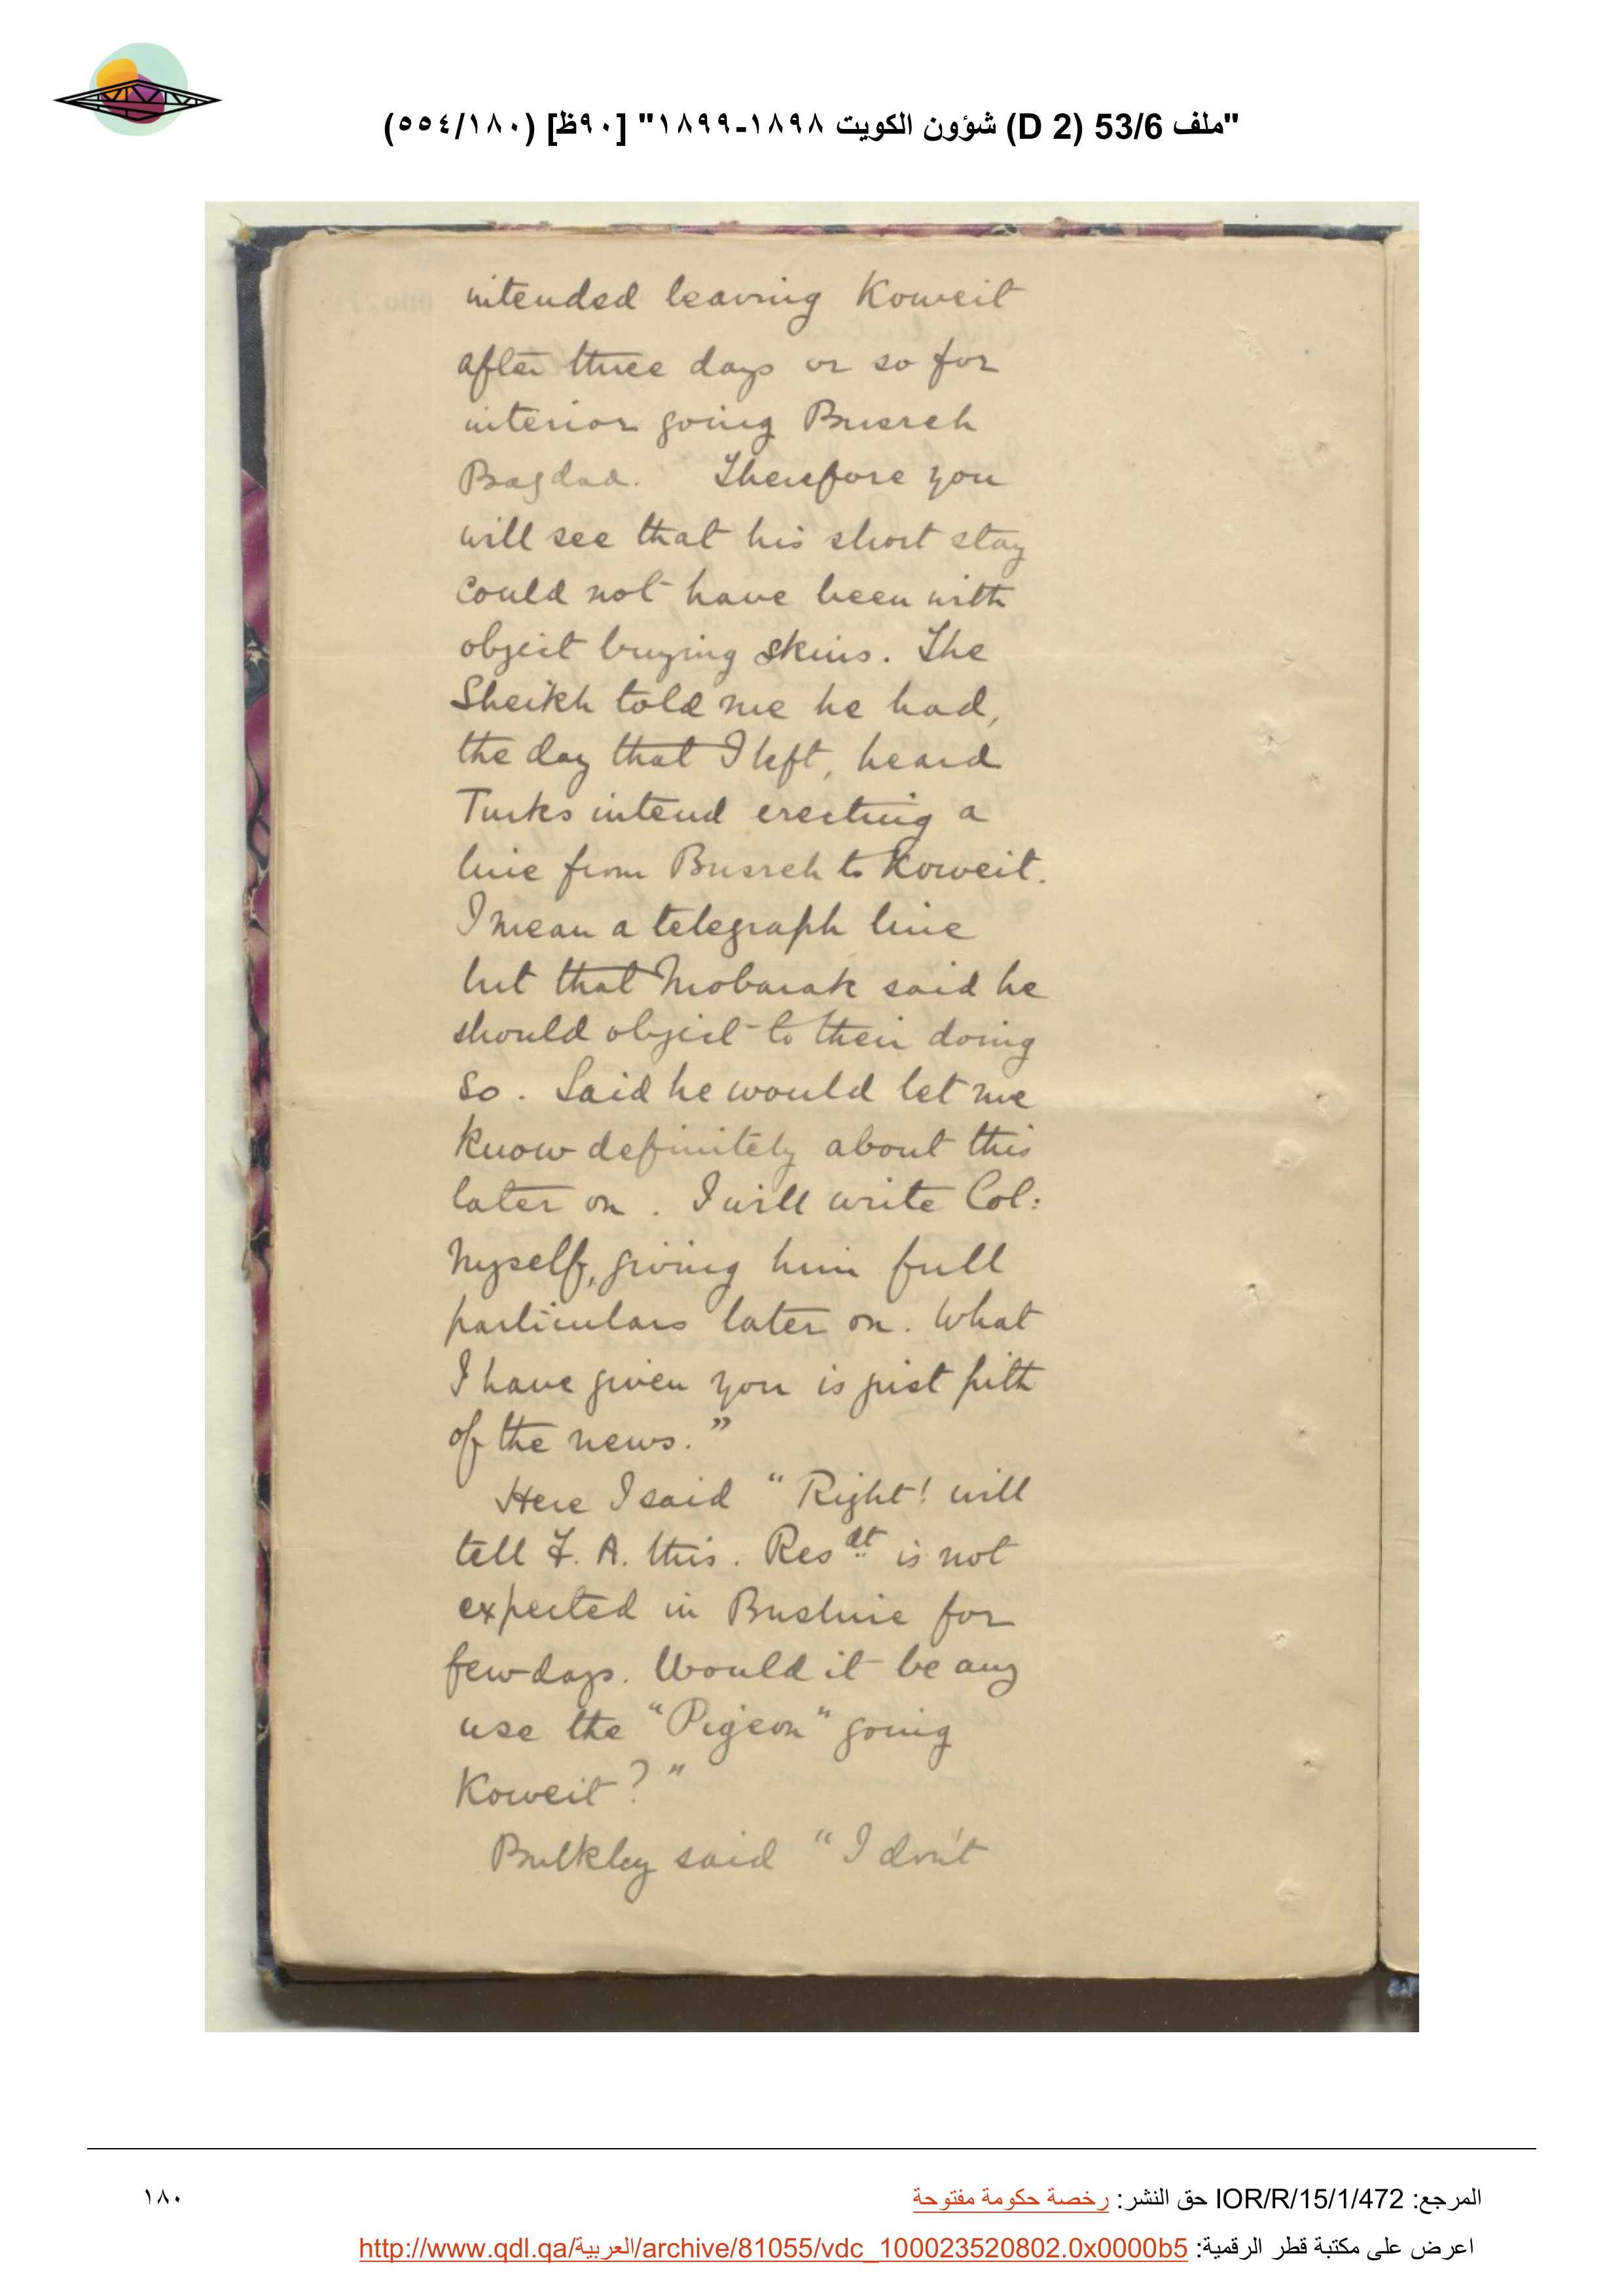 "ملف 53/6 (D 2) شؤون الكويت ١٨٩٨-١٨٩٩" [٩٠ظ] (٥٥٤/١٨٠)
intended leaving Koweit
after three days or so for
interior going Busreh
Bagdad. Therefore you
will see that his short stay
could not have been with
object buying skins. The
Sheikh told me he had,
the day that I left, heard
Turks intend erecting a
line from Busreh to Koweit.
I mean a telegraph line
but that Mobarak said he
should object to their doing
so. Said he would let me
know definitely about this
later on. I will write Col:
myself, giving him full
particulars later on. What
I have given you is just pith
of the news."
Here I said "Right! will
tell F. A. this. Resdt is not
expected in Bushire for
few days. Would it be any
use the "Pigeon" going
Koweit?"
Bulkley said "I don't
المرجع: IOR/R/15/1/472 حق النشر: رخصة حكومة مفتوحة
١٨٠
اعرض على مكتبة قطر الرقمية: http://www.qdl.qa/العربية/archive/81055/vdc_100023520802.0x0000b5